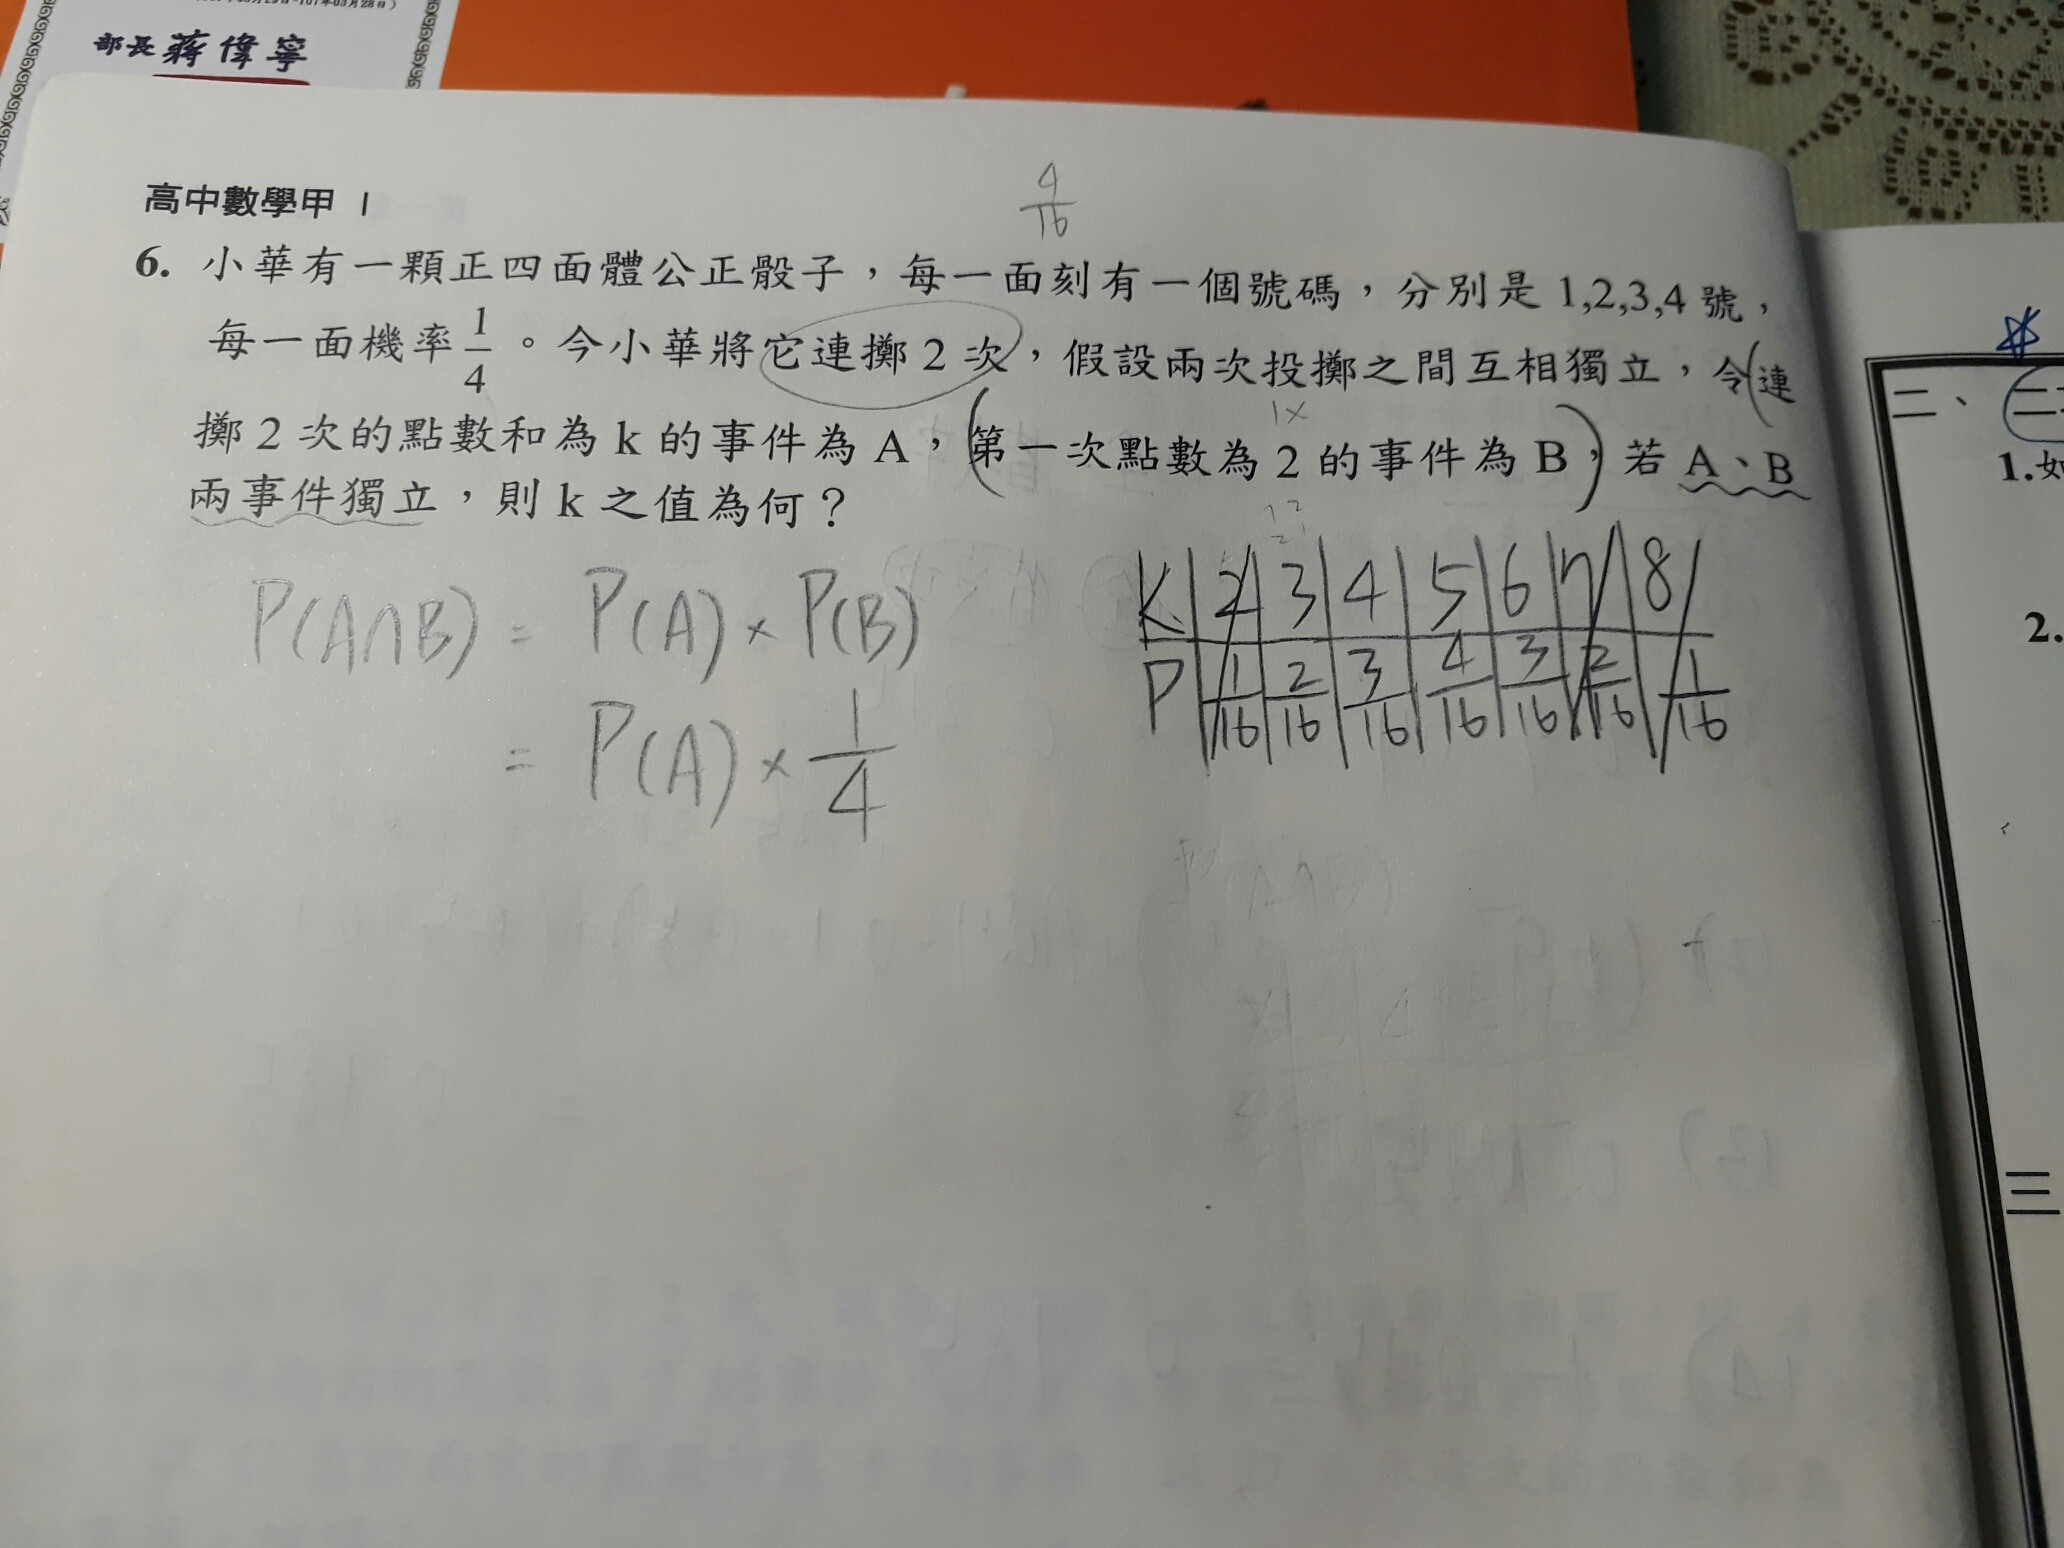 部長 蔣偉寧
4/16
高中數學甲 I
6. 小華有一顆正四面體公正骰子，每一面刻有一個號碼，分別是 1,2,3,4 號，
每一面機率 1/4 。今小華將它連擲 2 次，假設兩次投擲之間互相獨立，令(連
1x
擲 2 次的點數和為 k 的事件為 A，(第一次點數為 2 的事件為 B，) 若 A、B
兩事件獨立，則 k 之值為何？
K 2 3 4 5 6 7 8
P 1/16 2/16 3/16 4/16 3/16 2/16 1/16
P(A∩B) = P(A) × P(B)
= P(A) × 1/4
二、
1.如
2.
三